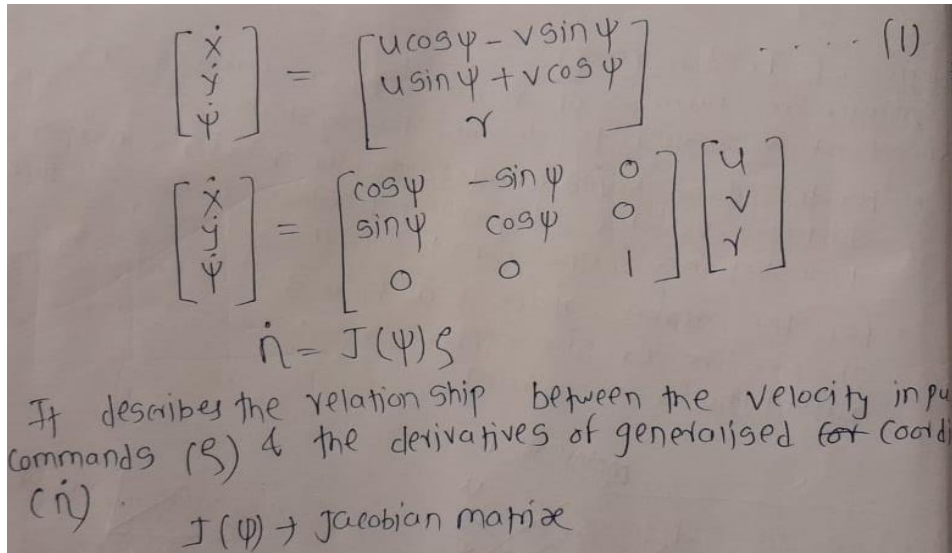 [ẋ ẏ ψ̇] = [ucosψ - vsinψ usinψ + vcosψ r] ..... (1)
[ẋ ẏ ψ̇] = [cosψ -sinψ 0 sinψ cosψ 0 0 0 1] [u v r]
ṅ = J(ψ)ζ
It describes the relation ship between the velocity inpu
commands (ζ) & the derivatives of generalised for coordi
(ṅ).
J(ψ) → Jacobian matrix